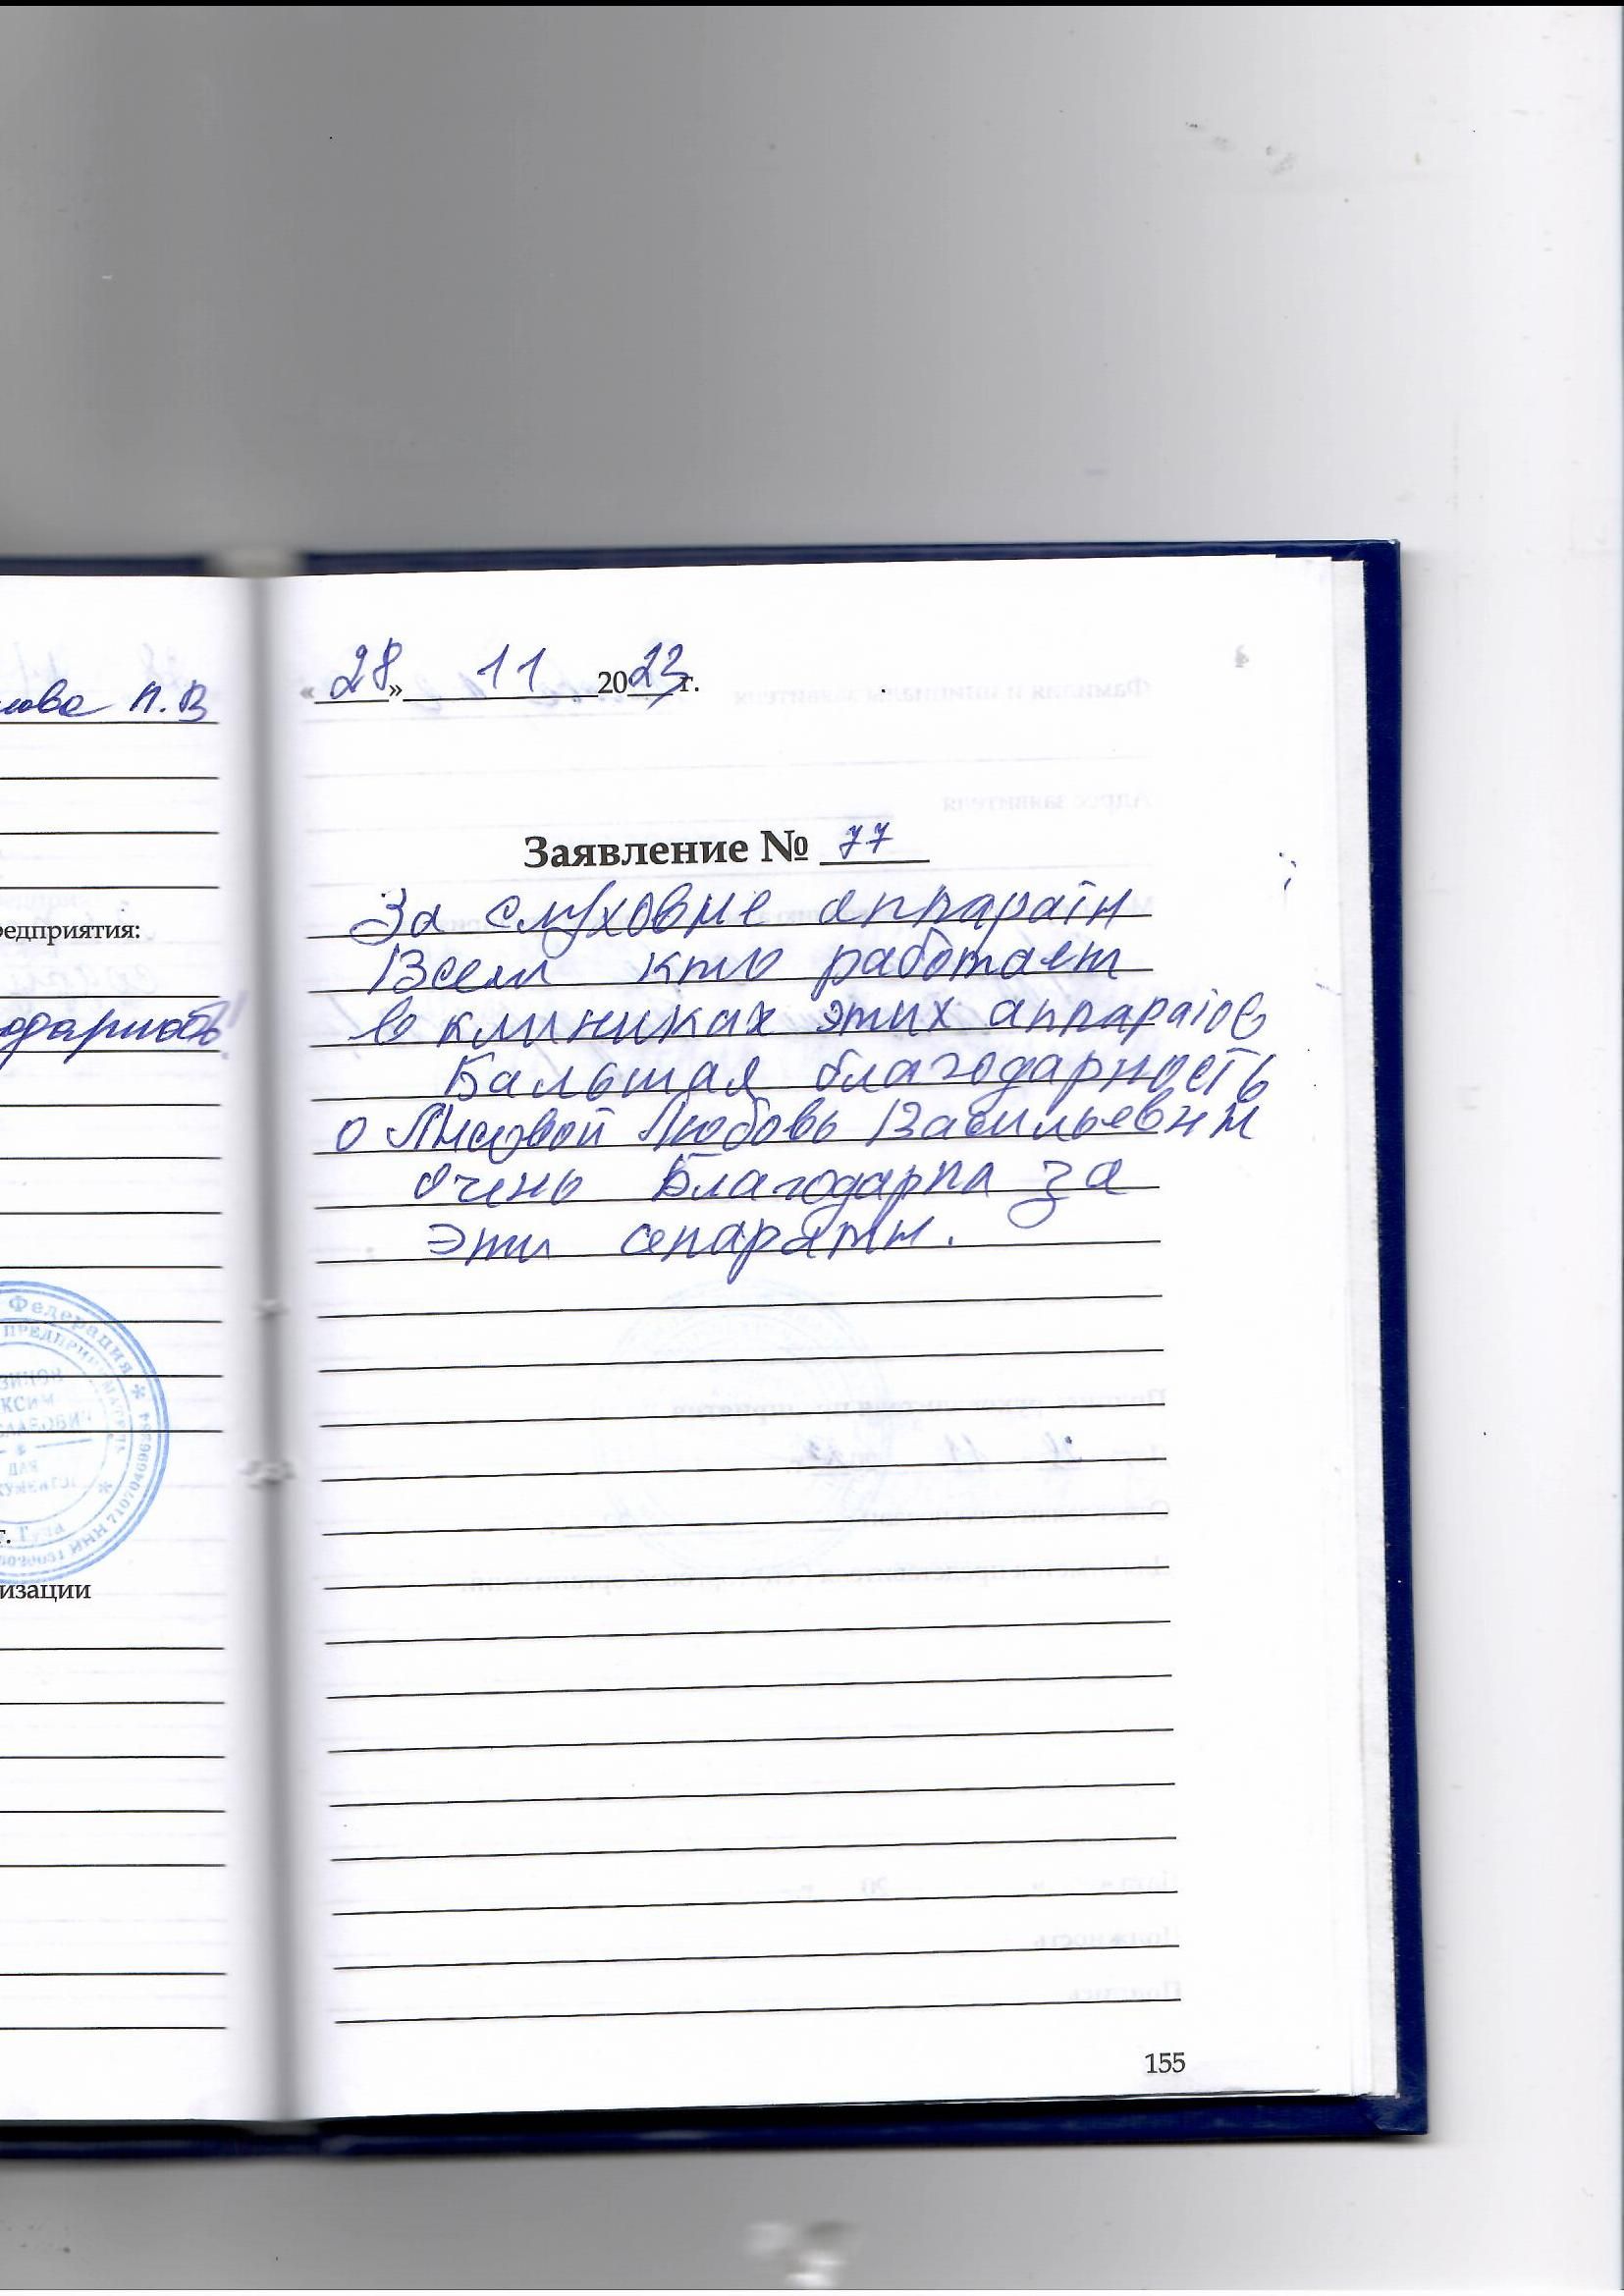 лова Л.В
редприятия:
одарность!
Федерация *
ПРЕДПРИНИМАТЕЛЬ
ДЛЯ
г. Тула
ИНН 710704696384
г.
изации
«28» 11 2023 г.
Заявление № 77
За слуховые аппараты
Всем кто работает
в клиниках этих аппаратов
Бальшая благодарность
о Лысовой Любовь Васильевны
очень Благодарна за
эти сепараты.
155